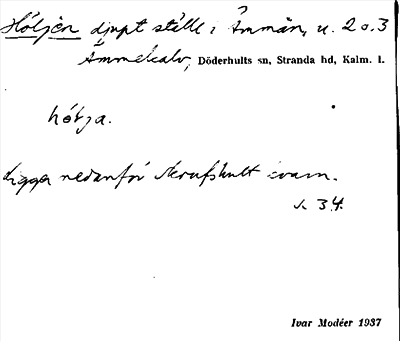 Höljen djupt ställe i Ämmån, u. 2 o. 3
Ämmekalv, Döderhults sn, Stranda hd, Kalm. l.
hölja.
ligger nedanför Skrufshult kvarn.
s. 34.
Ivar Modéer 1937